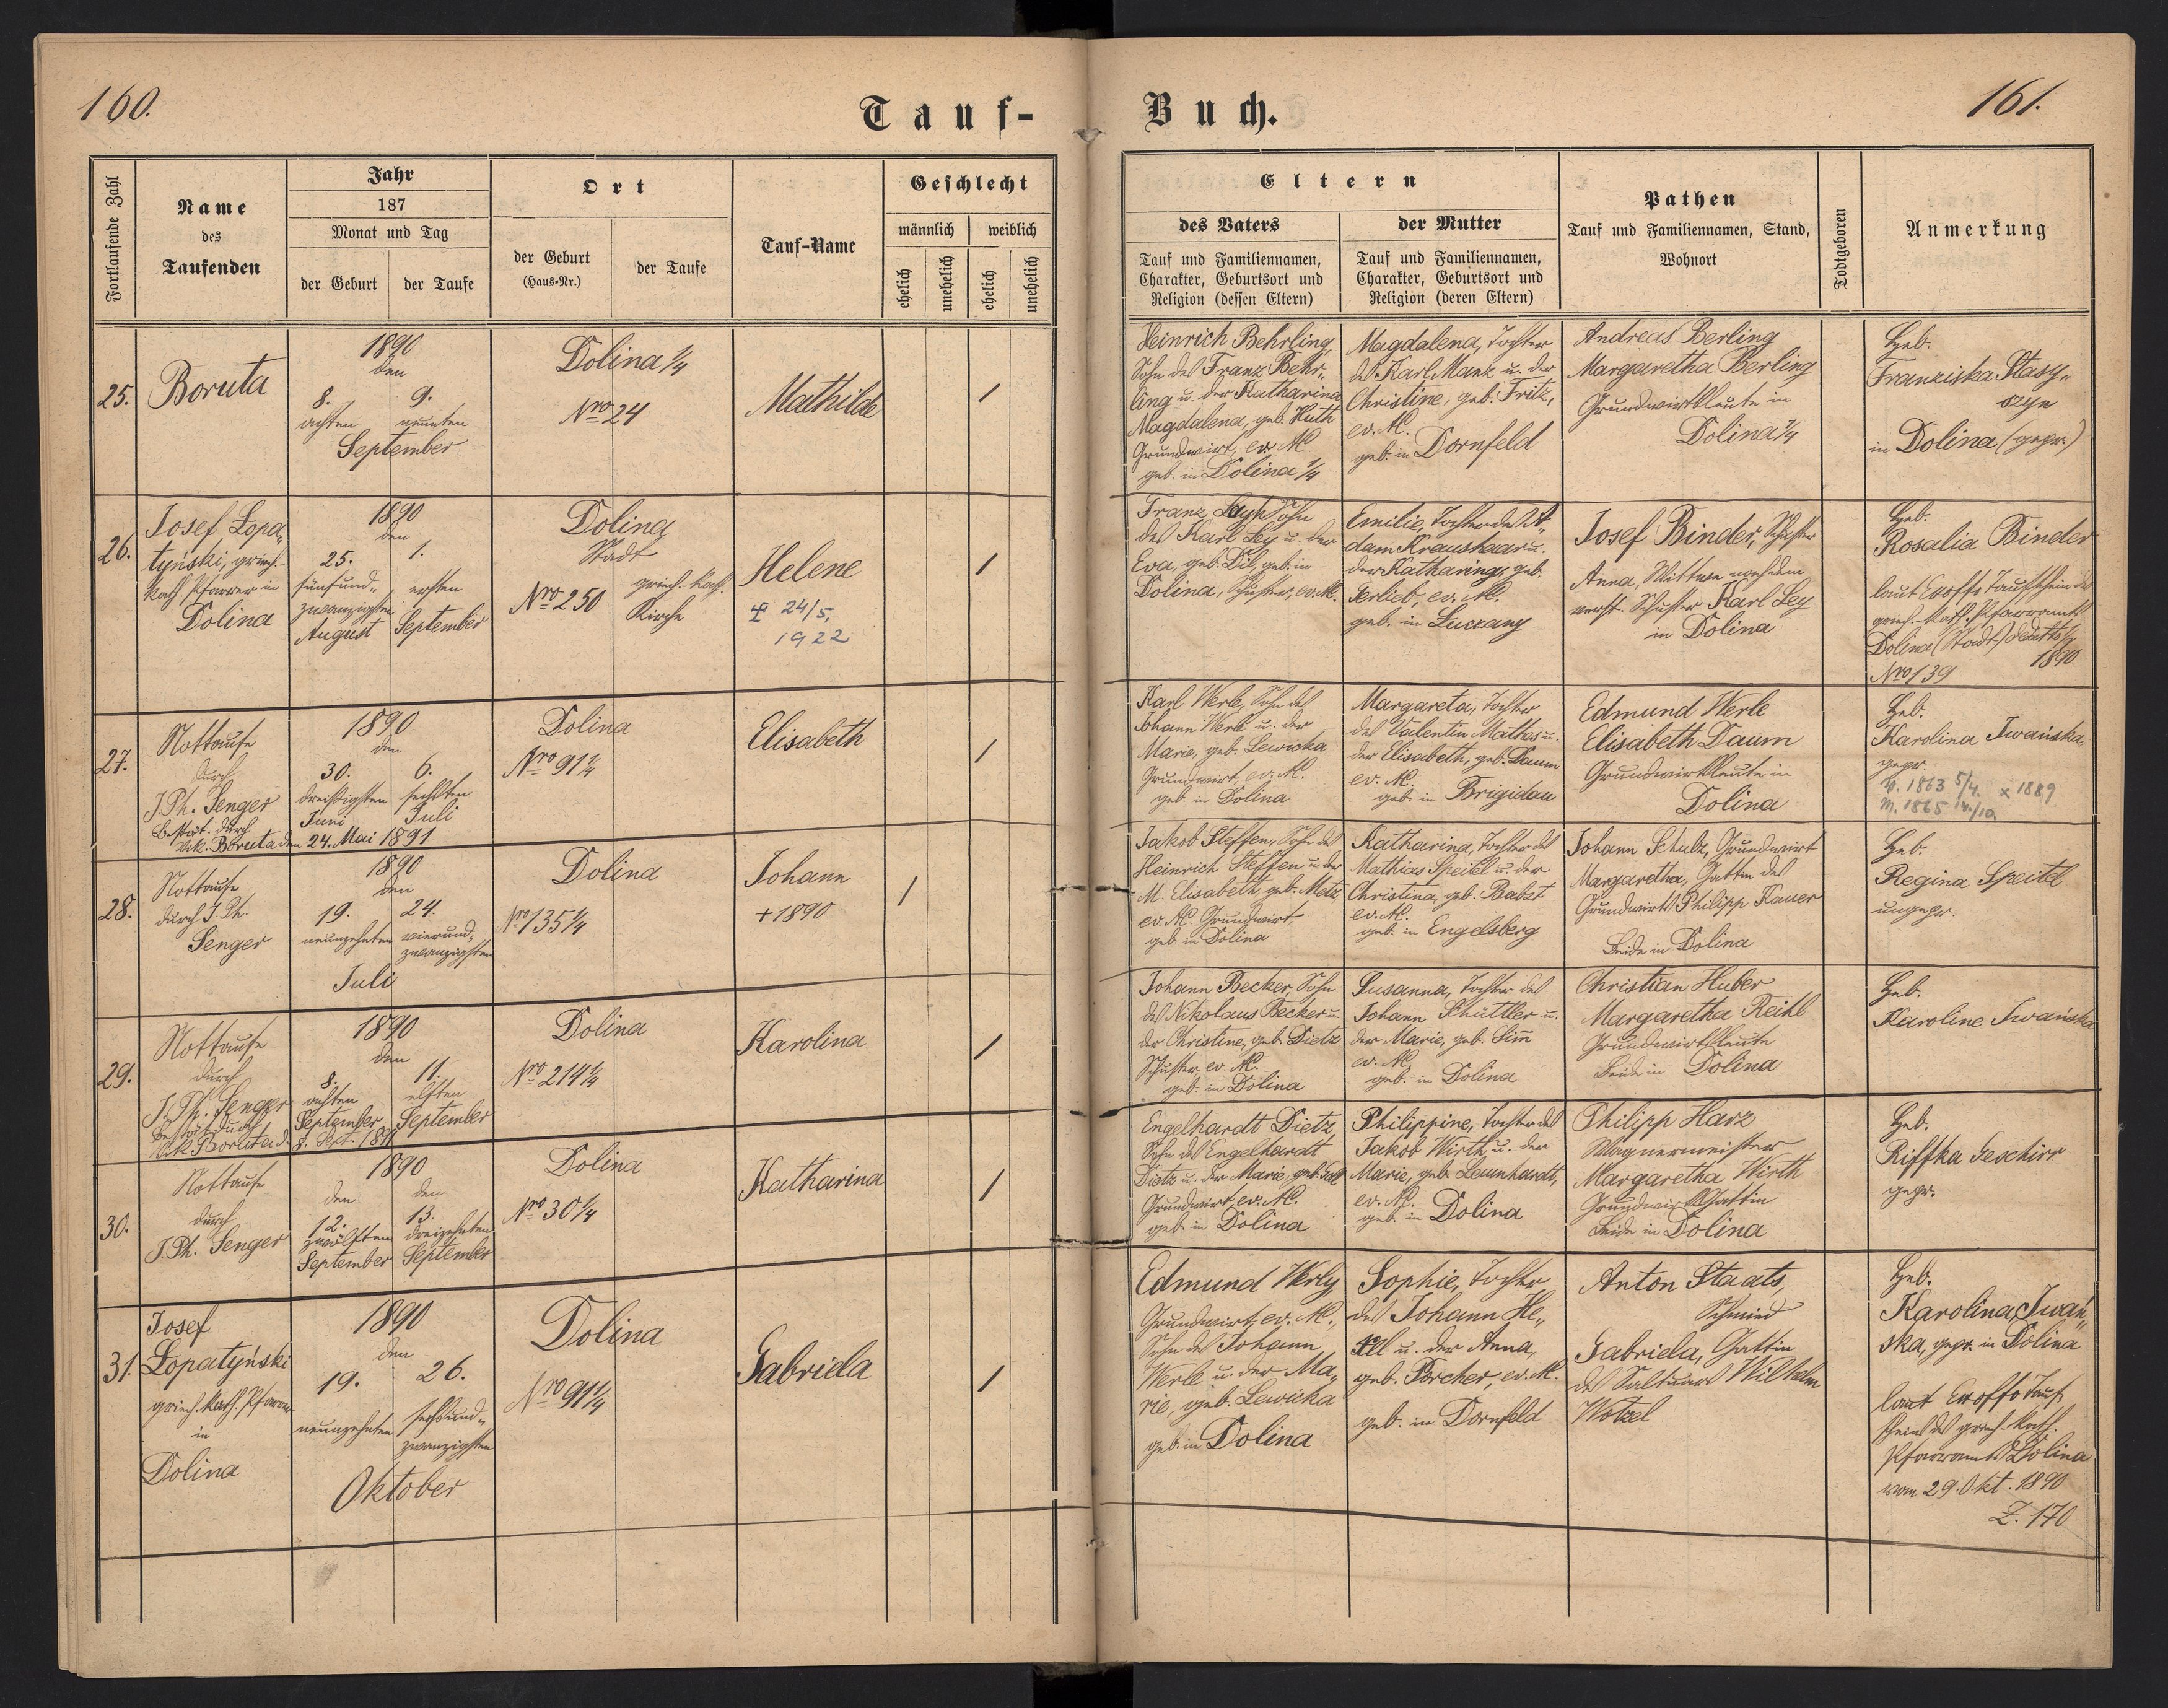 160.
Tauf-
Buch.
161.
Fortlaufende Zahl
Name
des
Taufenden
Jahr
187
Monat und Tag
der Geburt
der Taufe
Ort
der Geburt
(Haus-Nr.)
der Taufe
Tauf-Name
Geschlecht
männlich
weiblich
ehelich
unehelich
ehelich
unehelich
Eltern
des Vaters
Tauf und Familiennamen,
Charakter, Geburtsort und
Religion (dessen Eltern)
der Mutter
Tauf und Familiennamen,
Charakter, Geburtsort und
Religion (deren Eltern)
Pathen
Tauf und Familiennamen, Stand,
Wohnort
Todtgeboren
Anmerkung
25.
Boruta
1890
den
8.
achten
9.
neunten
September
Dolina ¼
Nro 24
Mathilde
/
Heinrich Behrling,
Sohn des Franz Behr„
ling u. der Katharina
Magdalena, geb. Huth
Grundwirt, ev. AC.
geb. in Dolina ¼
Magdalena, Tochter
des Karl Manz u. der
Christine, geb. Fritz,
ev. AC.
geb. in Dornfeld
Andreas Berling
Margaretha Berling
Grundwirtsleute in
Dolina ¼
Heb.
Franziska Stasy„
szyn
in Dolina (gepr.)
26.
Josef Lopa„
tyński, griech.
kath. Pfarrer in
Dolina
1890
den
25.
fünfund„
zwanzigsten
August
1.
ersten
September
Dolina
Stadt
Nro 250
griech. kath.
Kirche
Helene
24/5,
1922
/
Franz Ley, Sohn
des Karl Ley u. der
Eva, geb. Dil, geb. in
Dolina, Schuster, ev. AC.
Emilie, Tochter des A„
dam Kraushaar u.
der Katharina, geb.
Gerlieb, ev. AC.
geb. in Luczany
Josef Binder, Schuster
Anna, Wittwe nach dem
verst. Schuster Karl Ley
in Dolina
Heb.
Rosalia Binder
laut Exoffo Taufschein des
griech. kath. Pfarramts
Dolina (Stadt)
1890
Nro 139
27.
Nottaufe
durch
J. Ph. Senger
Bestät. durch
Vik. Boruta den 24. Mai 1891
1890
den
30.
dreißigsten
Juni
6.
sechsten
Juli
Dolina
Nro 91 ¼
Elisabeth
/
Karl Werle, Sohn des
Johann Werle u. der
Marie, geb. Lewicka
Grundwirt, ev. AC.
geb. in Dolina
Margareta, Tochter
des Valentin Mathes u.
der Elisabeth, geb. Daum
ev. AC.
geb. in Brigidau
Edmund Werle
Elisabeth Daum
Grundwirtsleute in
Dolina
Heb.
Karolina Iwańska,
gepr.
V. 1863 5/4. x 1889
M. 1865 14./10.
28.
Nottaufe
durch J. Ph.
Senger
1890
den
19.
neunzehnten
24.
vierund„
zwanzigsten
Juli
Dolina
Nro 135 ¼
Johann
+ 1890
/
Jakob Steffen, Sohn des
Heinrich Steffen u. der
M. Elisabeth, geb. Metz,
ev. AC. Grundwirt,
geb. in Dolina
Katharina, Tochter des
Mathias Speitel u. der
Christina, geb. Babst
ev. AC.
geb. in Engelsberg
Johann Schulz, Grundwirt
Margaretha, Gattin des
Grundwirts Philipp Kauer
Beide in Dolina
Heb.
Regina Speitel
ungepr.
29.
Nottaufe
durch
J. Ph. Senger
Bestät. durch
Vik. Boruta d. 8. Sept. 1891
1890
den
8.
achten
September
11.
elften
September
Dolina
Nro 214 ¼
Karolina
/
Johann Becker, Sohn
des Nikolaus Becker u.
der Christine, geb. Dietz
Schuster, ev. AC.
geb. in Dolina
Susanna, Tochter des
Johann Schüttler u.
der Marie, geb. Sim̄
ev. AC.
geb. in Dolina
Christian Huber
Margaretha Reihl
Grundwirtsleute
Beide in Dolina
Heb.
Karoline Iwańska
30.
Nottaufe
durch
J. Ph. Senger
1890
den
den
12.
zwölften
September
13.
dreizehnten
September
Dolina
Nro 30 ¼
Katharina
/
Engelhardt Dietz
Sohn des Engelhardt
Dietz u. der Marie, geb.
Grundwirt, ev. AC.
geb. in Dolina
Philippine, Tochter des
Jakob Wirth u. der
Marie, geb. Leuenhardt,
ev. AC.
geb. in Dolina
Philipp Harz
Wagnermeister
Margaretha Wirth
Grundwirtsgattin
Beide in Dolina
Heb.
Riffka Geschirr
gepr.
31.
Josef
Lopatyński
griech. kath. Pfarrer
in
Dolina
1890
den
19.
neunzehnten
26.
sechsund„
zwanzigsten
Oktober
Dolina
Nro 91 ¼
Gabriela
/
Edmund Werle,
Grundwirt, ev. AC.,
Sohn des Johann
Werle u. der Ma„
rie, geb. Lewicka
geb. in Dolina
Sophie, Tochter
des Johann He„
u. der Anna,
geb. Porcher, ev. AC.
geb. in Dornfeld
Anton Staats,
Schmied
Gabriela, Gattin
des Saltuars Wilhelm
Wotzel
Heb.
Karolina Iwań„
ska, gepr. in Dolina
laut Exoffo Tauf„
schein des griech. kath.
Pfarramts Dolina
vom 29. Okt. 1890
Z. 170